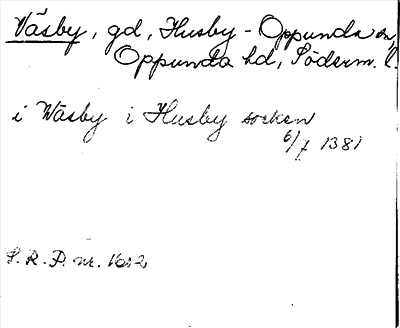 Väsby, gd, Husby-Oppunda sn,
Oppunda hd, Söderm. l.
i Wäsby i Husby socken
6/7 1381
S. R. P. nr.